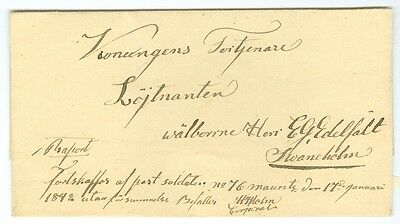 Konungens Tortjenare
Löjtnanten
wälborne Herr E G Edelfält
Rapport
Swaneholm
fortskaffas af post soldat No 76 mauritz den 17de januari
1842 utan försummelse befaller HHolm
Corporal